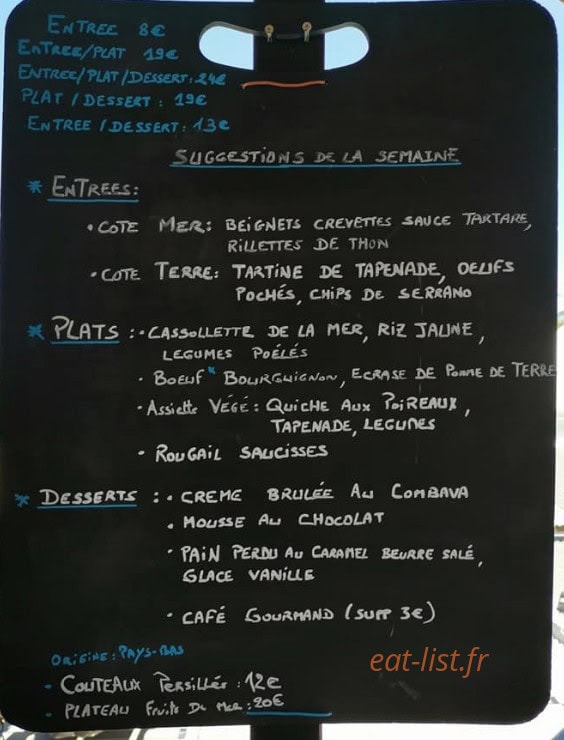 ENTREE 8€
ENTREE/PLAT 19€
ENTREE/PLAT/DESSERT: 24€
PLAT / DESSERT : 19€
ENTREE / DESSERT: 13€
SUGGESTIONS DE LA SEMAINE
* ENTREES:
• COTE MER: BEIGNETS CREVETTES SAUCE TARTARE,
RILLETTES DE THON
• COTE TERRE: TARTINE DE TAPENADE, OEUFS
POCHÉS, CHIPS DE SERRANO
* PLATS : • CASSOLLETTE DE LA MER, RIZ JAUNE,
LEGUMES POÊLÉS
• BOEUF* BOURGUIGNON, ECRASE DE POMME DE TERRE
• ASSIETTE VÉGÉ : QUICHE AUX POIREAUX,
TAPENADE, LEGUMES
• ROUGAIL SAUCISSES
* DESSERTS : • CREME BRULÉE AU COMBAVA
• MOUSSE AU CHOCOLAT
• PAIN PERDU AU CARAMEL BEURRE SALÉ,
GLACE VANILLE
• CAFÉ GOURMAND (SUPP 3€)
ORIGINE: PAYS-BAS
- COUTEAUX PERSILLÉS : 12€
- PLATEAU FRUITS DE MER : 20€
eat-list.fr